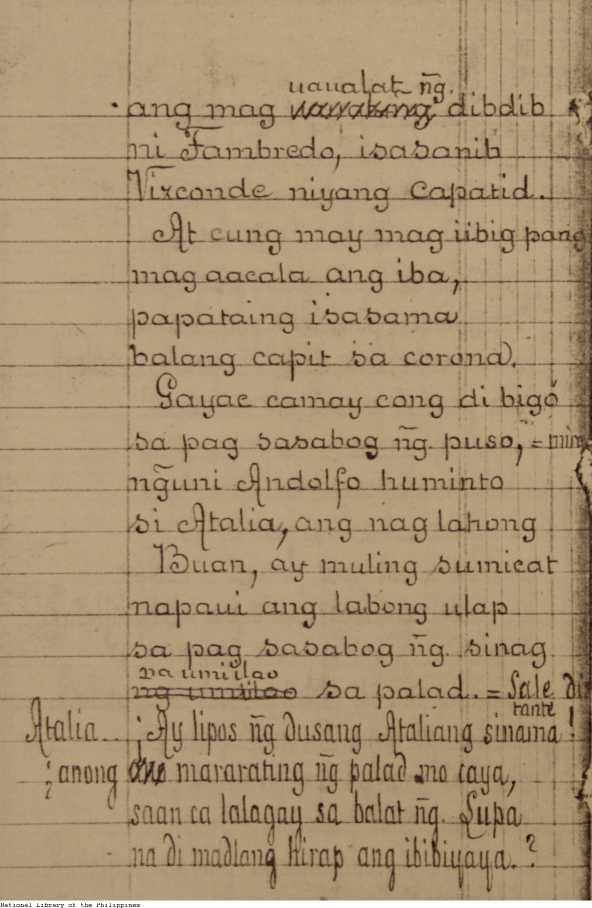 uaualat n̄g.
ang mag dibdib
ni Fambredo, isasanib
Vizconde niyang capatid.
At cung may mag iibig pang
mag aacala ang iba,
papataing isasama
balang capit sa corona.
Gayac camay cong di bigó
sa pag sasabog n̄g. puso, =
n̄guni Andolfo huminto
si Atalia, ang nag lahong
Buan, ay muling sumicat
napaui ang labong ulap
sa pag sasabog n̄g. sinag
na umiilao
ng umiilao sa palad. = Sale di
tante
Atalia.. ¡Ay lipos n̄g dusang Ataliang sinama!
¿anong mararating n̄g palad mo caya,
saan ca lalagay sa balat n̄g. Lupa
na di madlang hirap ang ibibiyaya.?
National Library of the Philippines